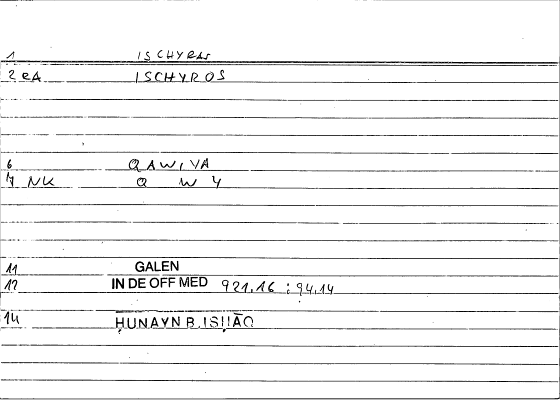 1 ISCHYRAS
2 eA ISCHYROS
6 QAWIYA
7 NK Q W Y
11 GALEN
12 IN DE OFF MED 921.16 : 94.14
14 ḤUNAYN B. ISḤĀQ